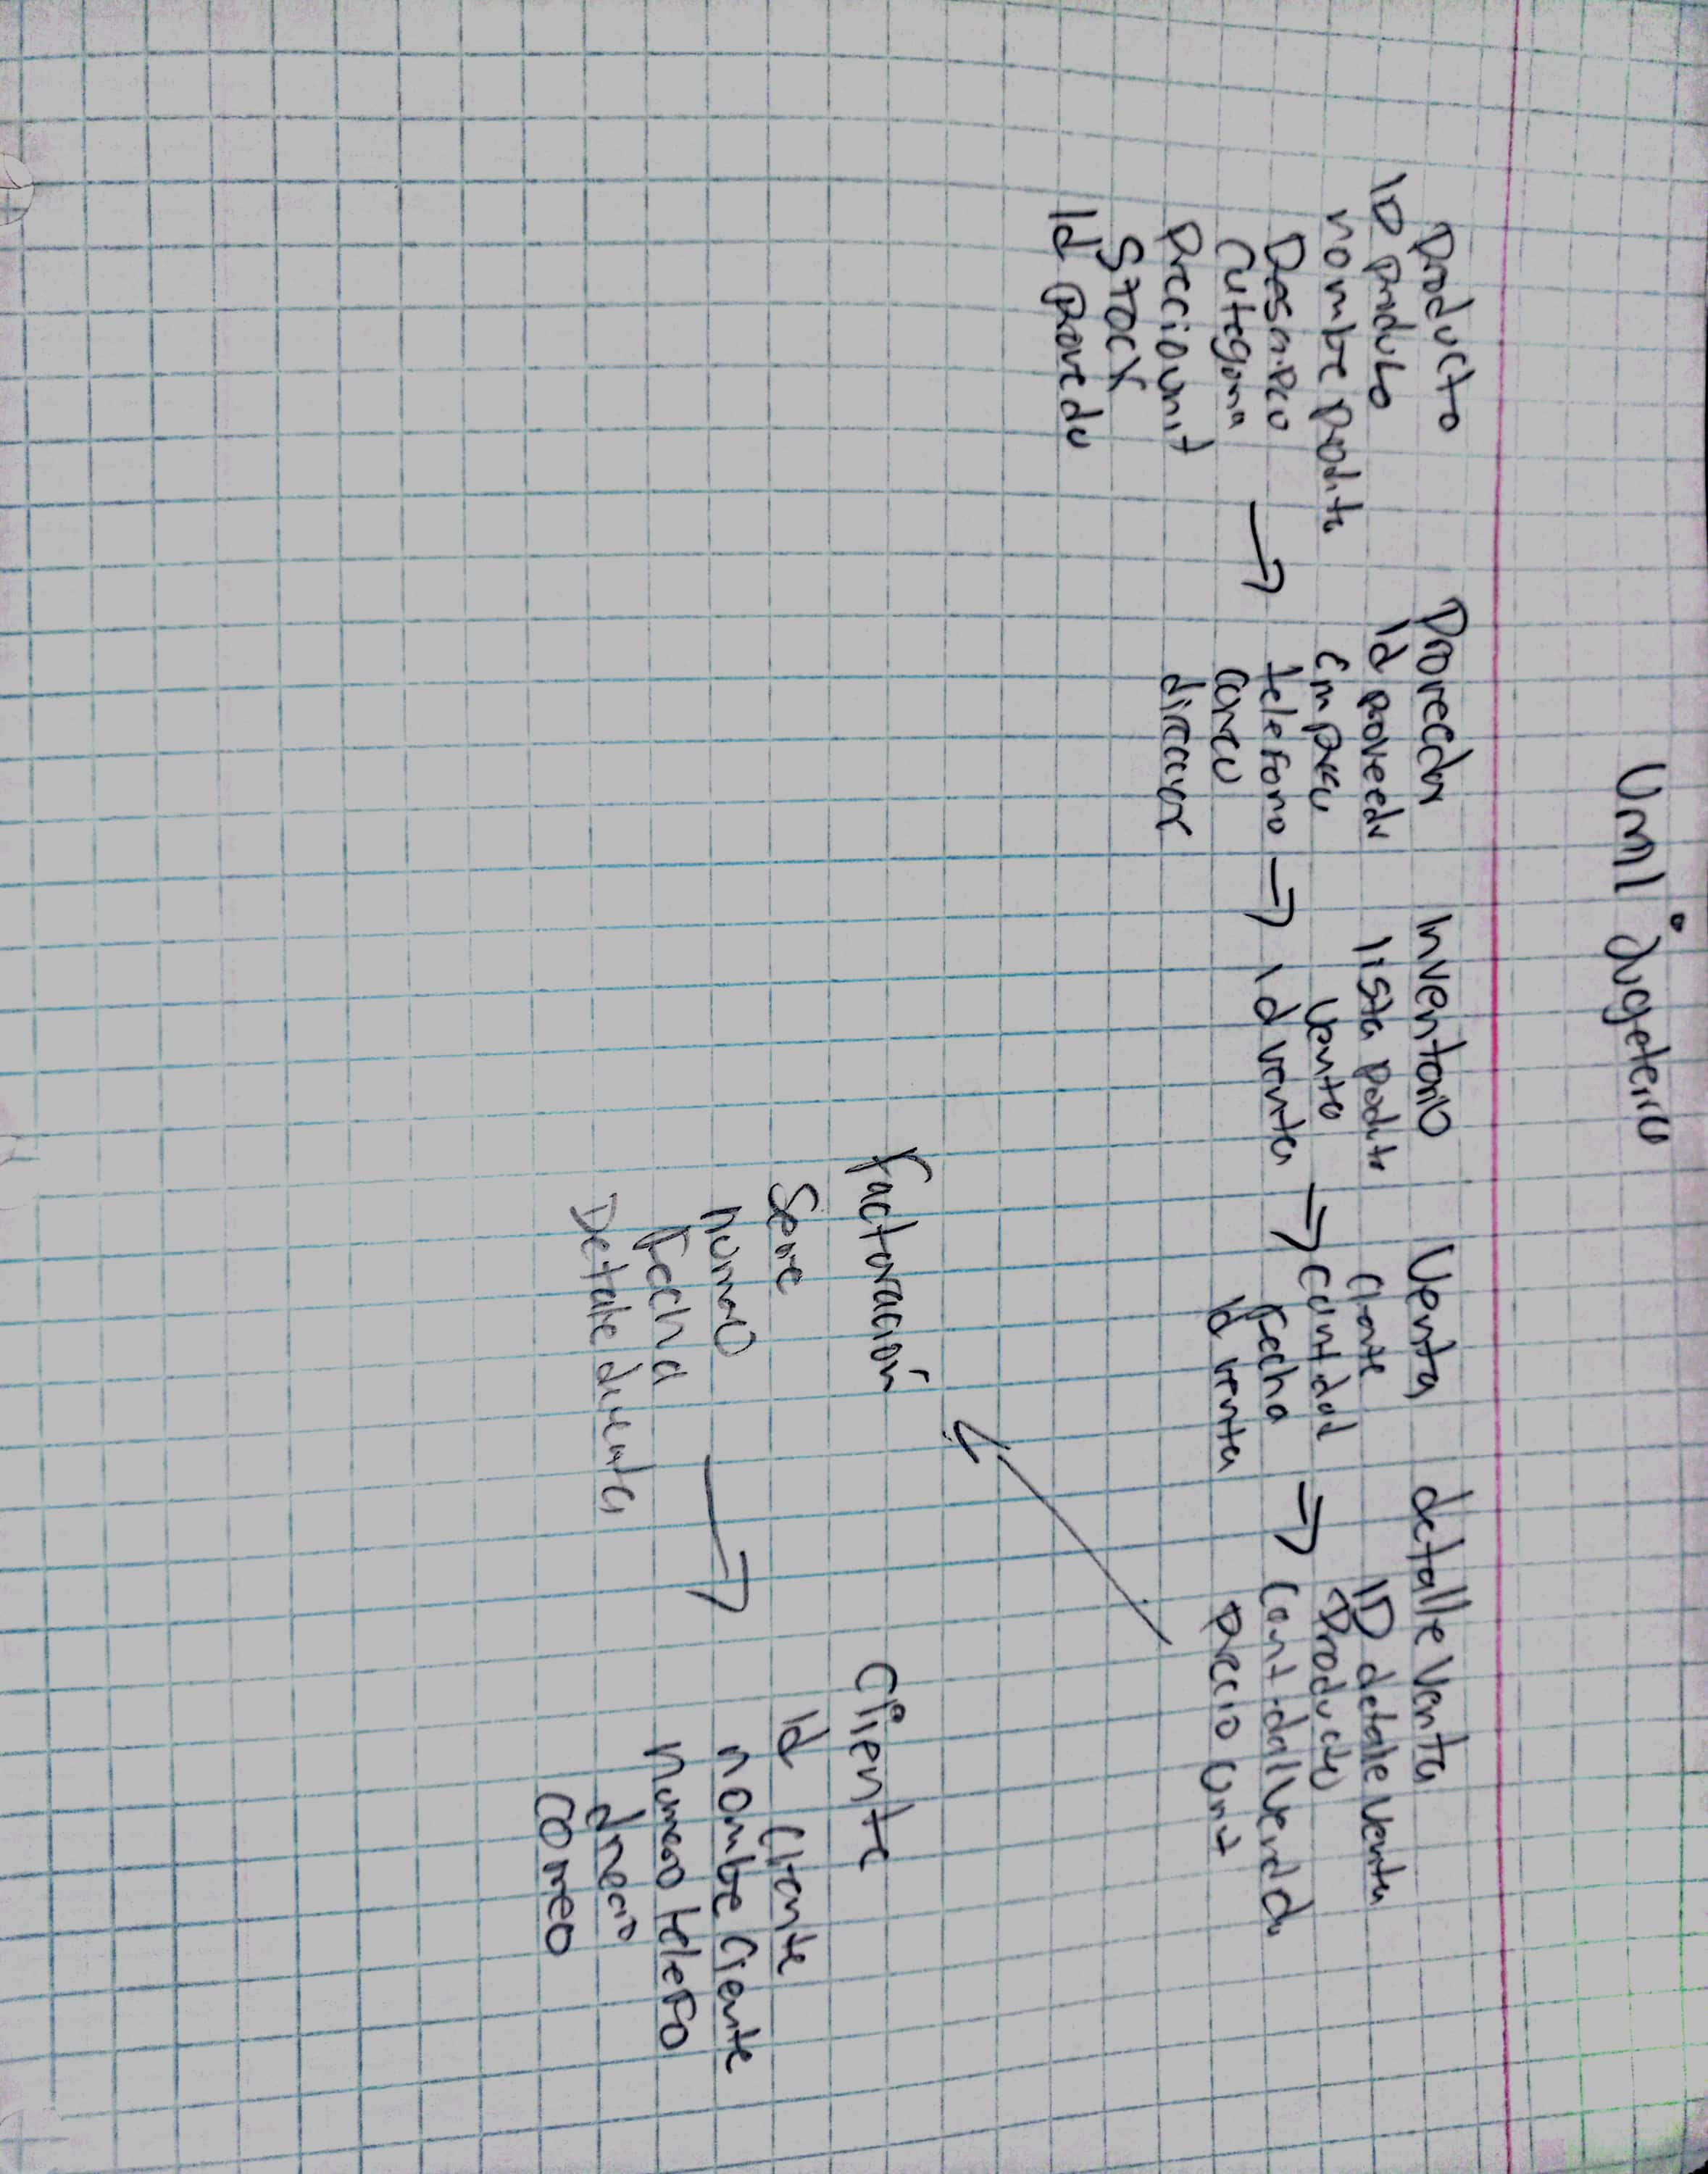 Uml Jugeteria
Producto
ID Produto
nombre Produto
Descripcio
Categoria
Preciounit
Stock
Id Provedo
Proveedor
Id proveedo
Empresa
telefono
correo
Inventario
lista produto
Venta
Id venta
Venta
cliente
cantidad
Fecha
Id venta
detalle Venta
ID detalle Venta
Producto
Precio Unit
Facturación
Serie
numero
Fecha
Detalle
Cliente
Id Cliente
nombre Ciente
numero telefo
direcio
correo